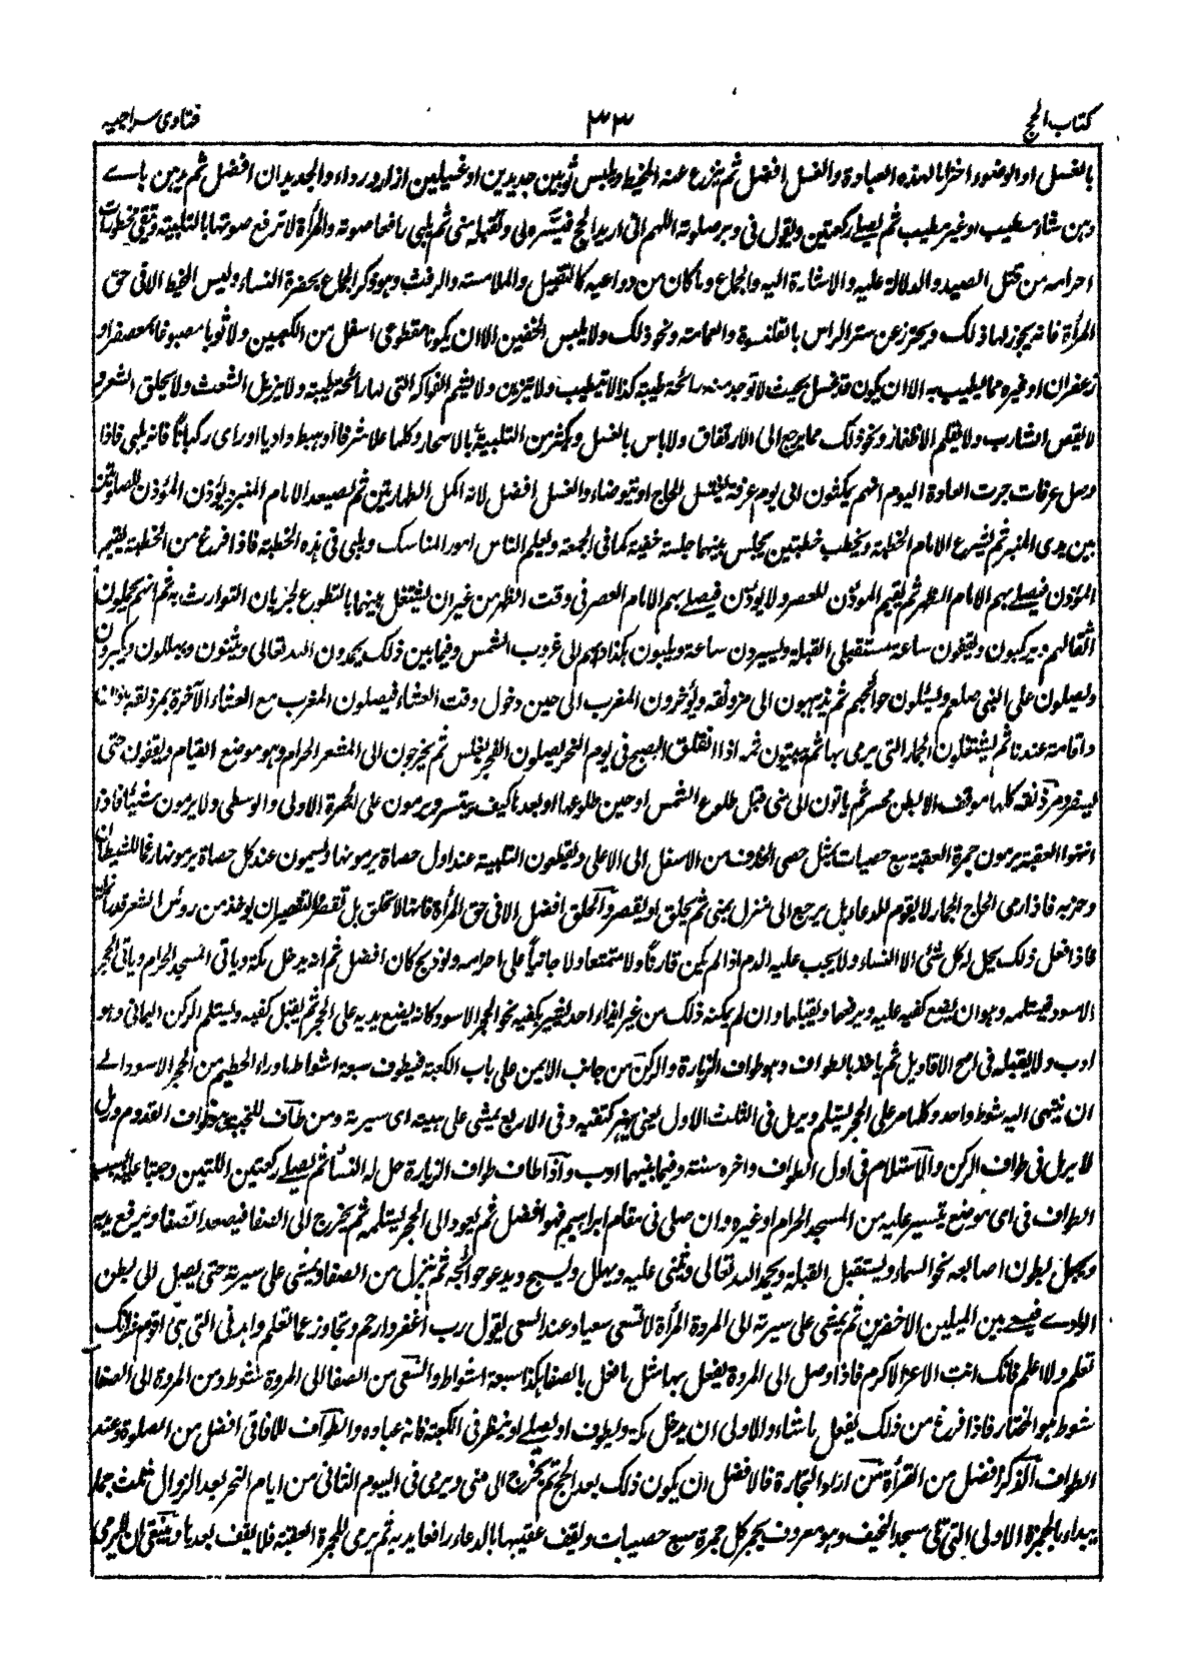 كتاب الحج ٣٣ فتاوى سراجيه
بالغسل او الوضوء احترازا لهذه العبادة والغسل افضل ثم ينزع عنه المخيط ويلبس ثوبين جديدين او غسيلين ازار ورداء والجديدان افضل ثم يدهن باے
دهن شاء مطيب او غير مطيب ثم يصلے ركعتين ويقول فى دبر صلوته اللهم انى اريد الحج فيسره لى وتقبله منى ثم يلبى رافعا صوته والمرأة لا ترفع صوتها بالتلبية ويتقى محظورات
احرامه من قتل الصيد والدلالة عليه والاشارة اليه والجماع وما كان من دواعيه كالتقبيل والملامسته والرفث وهو ذكر الجماع بحضرة النساء ولبس المخيط الا فى حق
المرأة فانه يجوز لها ذلك ويحترز عن ستر الراس بالقلنسوة والعمامة ونحو ذلك ولا يلبس الخفين الا ان يكونا مقطوعى اسفل من الكعبين ولا ثوبا مصبوغا بمعصفر او
زعفران او غيره مما يطيب به الا ان يكون قد غسل بحيث لا توجد منه رائحة طيبة كذا لا يتطيب ولا يتزين ولا يشم الفواكه التى لها رائحة طيبة ولا يزيل الشعث ولا يحلق الشعر و
لا يقص الشارب ولا يقلم الاظفار ونحو ذلك مما يرجع الى الارتفاق ولا باس بالغسل ويكثر من التلبية بالاسحار وكلما علا شرفا او هبط واديا او راى ركبانا فانه يلبى فاذا
وصل عرفات جرت العادة اليوم انهم يكفون الى يوم عرفة يغتسل الحاج او يتوضاء والغسل افضل لانه اكمل الطهارتين ثم يصعد الامام المنبر ويؤذن المؤذن للصلوتين
بين يدى المنبر ثم يشرع الامام الخطبة ويخطب خطبتين يجلس بينهما جلسة خفيفة كما فى الجمعة ويعلم الناس امور المناسك ويلبى فى هذه الخطبة فاذا فرغ من الخطبة يقيم
المؤذن فيصلے بهم الامام الظهر ثم يقيم المؤذن للعصر ولا يؤذن فيصلے بهم الامام العصر فى وقت الظهر من غير ان يشتغل بينهما بالتطوع لجريان التوارث به ثم انهم يحملون
اثقالهم ويركبون ويقفون ساعة مستقبلى القبلة ويسيرون ساعة ويلبون هكذا دابهم الى غروب الشمس وفيما بين ذلك يحمدون الله تعالى ويثنون ويهللون ويكبرون
ويصلون على النبى صلعم ويسئلون حوائجهم ثم يذهبون الى مزدلفة ويؤخرون المغرب الى حين دخول وقت العشاء فيصلون المغرب مع العشاء الآخرة بمزدلفة باذان
واقامة عندنا ثم يشتغلون الجمار التى يرمى بها ثم يبيتون ثمه اذا انفلق الصبح فى يوم النحر يصلون الفجر بغلس ثم يخرجون الى المشعر الحرام وهو موضع القيام ويقفون حتى
يسفر ومزدلفة كلها موقف الا بطن محسر ثم ياتون الى منى قبل طلوع الشمس او حين طلوعها او بعدها كيف يتيسر ويرمون على الجمرة الاولى والوسطى ولا يرمون شيئا فاذا
انتهوا العقبة يرمون جمرة العقبة سبع حصيات مثل حصى الخذف من الاسفل الى الاعلى ويقطعون التلبية عند اول حصاة يرمونها ويسمون عند كل حصاة يرمونها رغما للشيطان
وحزبه فاذا رمى الحاج الجمار لا يقوم للدعاء بل يرجع الى منزل بمنى ثم يحلق او يقصر والحلق افضل الا فى حق المرأة فانها لا تحلق بل تقصر والتقصير ان يوخذ من رؤس الشعر قدر انملة
فاذا فعل ذلك يحل له كل شئ الا النساء ولا يجب عليه الدم اذا لم يكن قارنا ولا متمتعا ولا جانيا على احرامه ولو ذبح كان افضل ثم انه يدخل مكة وياتى المسجد الحرام وياتى الحجر
الاسود فيستلمه وهو ان يضع كفيه عليه ويرفعهما ويقبلهما وان لم يمكنه ذلك من غير ايذاء احد يشير بكفيه نحو الحجر الاسود كانه يضع يديه على الحجر ثم يقبل كفيه ويستلم الركن اليمانى وهو
ادب ولا يقبله فى اصح الاقاويل ثم ياخذ بالطواف وهو طواف الزيارة والركن من جانب الايمن على باب الكعبة فيطوف سبعة اشواط وراء الحطيم من الحجر الاسود الے
ان ينتهى اليه شوط واحد وكلما مر على الحجر يستلم ويرمل فى الثلث الاول يعنى يهز كتفيه وفى الاربع يمشى على هيبته اى سيرته ومن طاف للتحية وهو طواف القدوم ورمل
لا يرمل فى طواف الركن والاستلام فى اول الطواف واخره سنة وفيما بينهما ادب واذا طاف طواف الزيارة حل له النساء ثم يصلے ركعتين اللتين وجبتا عليه بسبب
الطواف فى اى موضع تيسر عليه من المسجد الحرام او غيره وان صلى فى مقام ابراهيم فهو افضل ثم يعود الى الحجر ليستلمه ثم يخرج الى الصفا فيصعد الصفا ويرفع يديه
ويجعل بطون اصابعه نحو السماء ويستقبل القبلة ويحمد الله تعالى ويثنى عليه ويهلل ويسبح ويدعو حوائجه ثم ينزل من الصفا ويمشى على سيرته حتى يصل الى بطن
الوادے فيسعے بين الميلين الاخضرين ثم يمشى على سيرته الى المروة المرأة لا تسعى سعيا وعند السعى يقول رب اغفر وارحم وتجاوز عما تعلم واهدنى التى هى اقوم فانك
تعلم ولا اعلم فانك انت الاعز الاكرم فاذا وصل الى المروة يفعل بها مثل ما فعل بالصفا هكذا سبعة اشواط والسعى من الصفا الى المروة شوط ومن المروة الى الصفا
شوط هو المختار فاذا فرغ من ذلك يفعل ما شاء والاولى ان يدخل مكة ويطوف او يصلے او ينظر فى الكعبة فانه عبادة والطواف للافاقى افضل من الصلوة وعند
الطواف الذكر افضل من القرأة من اراد التجارة فالافضل ان يكون ذلك بعد الحج ثم يخرج الى منى ويرمى فى اليوم الثانى من ايام النحر بعد الزوال ثلث جمار
يبداء بالجمرة الاولى التى تلى مسجد الخيف وهو معروف بحجر كل جمرة سبع حصيات ويقف عقيبها بالدعاء رافعا يديه ثم يرمى للجمرة العقبة فلا يقف بعدها وينبغى ان يرمى